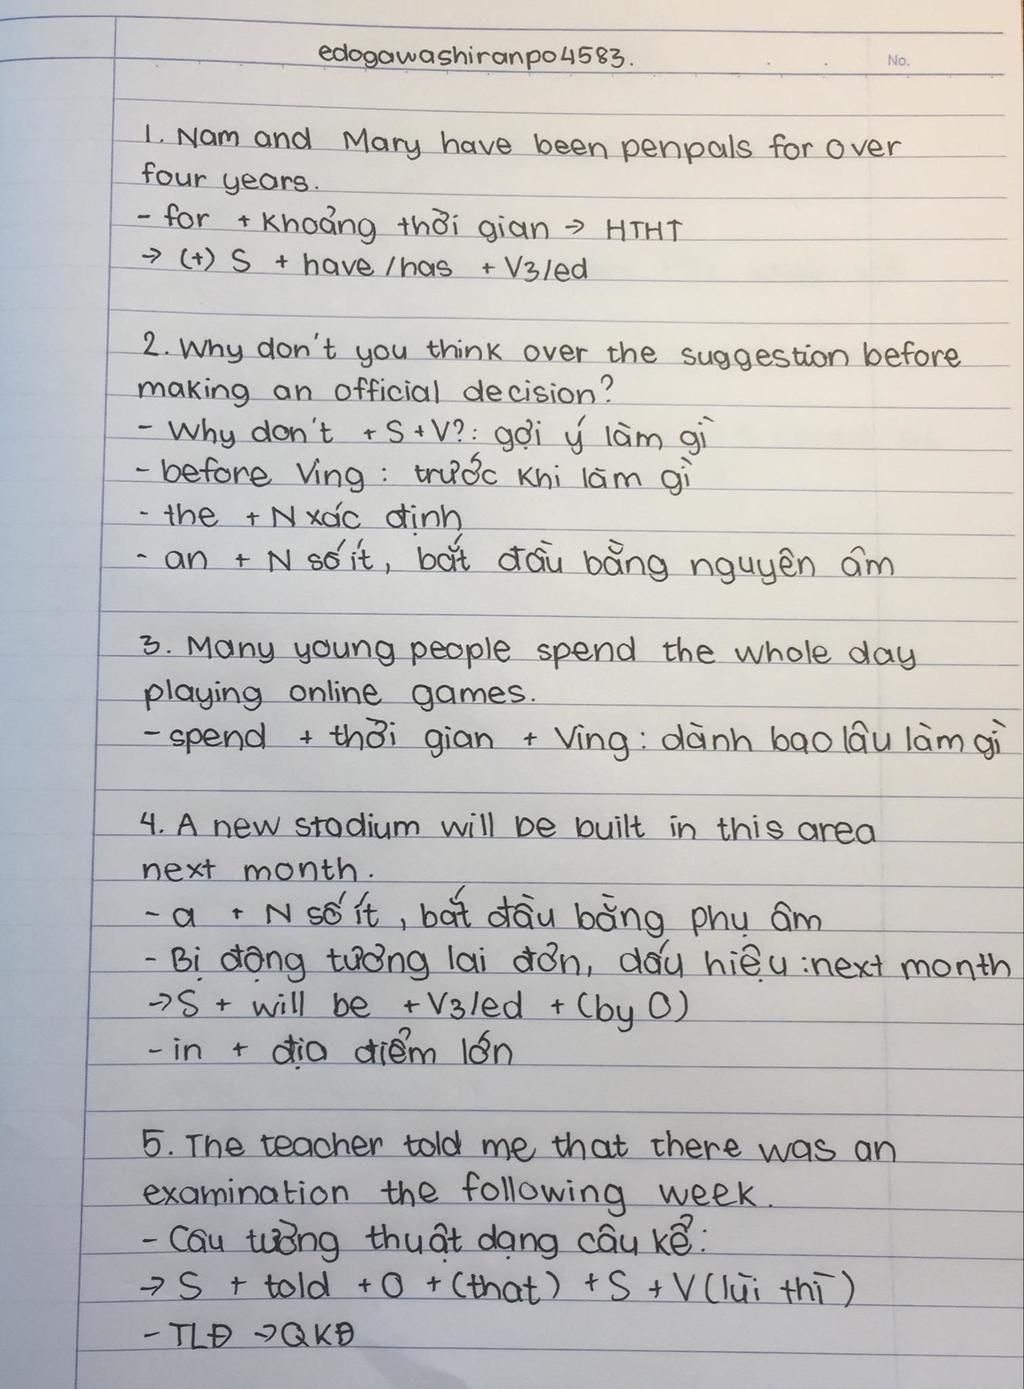 edogawashiranpo4583.
No.
1. Nam and Mary have been penpals for over
four years.
- for + khoảng thời gian → HTHT
→ (+) S + have/has + V3/ed
2. Why don't you think over the suggestion before
making an official decision?
- Why don't + S + V?: gợi ý làm gì
- before Ving : trước khi làm gì
- the + N xác định
- an + N số ít, bắt đầu bằng nguyên âm
3. Many young people spend the whole day
playing online games.
- spend + thời gian + Ving : dành bao lâu làm gì
4. A new stadium will be built in this area
next month.
- a + N số ít, bắt đầu bằng phụ âm
- Bị động tương lai đơn, dấu hiệu : next month
→ S + will be + V3/ed + (by O)
- in + địa điểm lớn
5. The teacher told me that there was an
examination the following week.
- Câu tường thuật dạng câu kể:
→ S + told + O + (that) + S + V (lùi thì)
- TLĐ → QKĐ